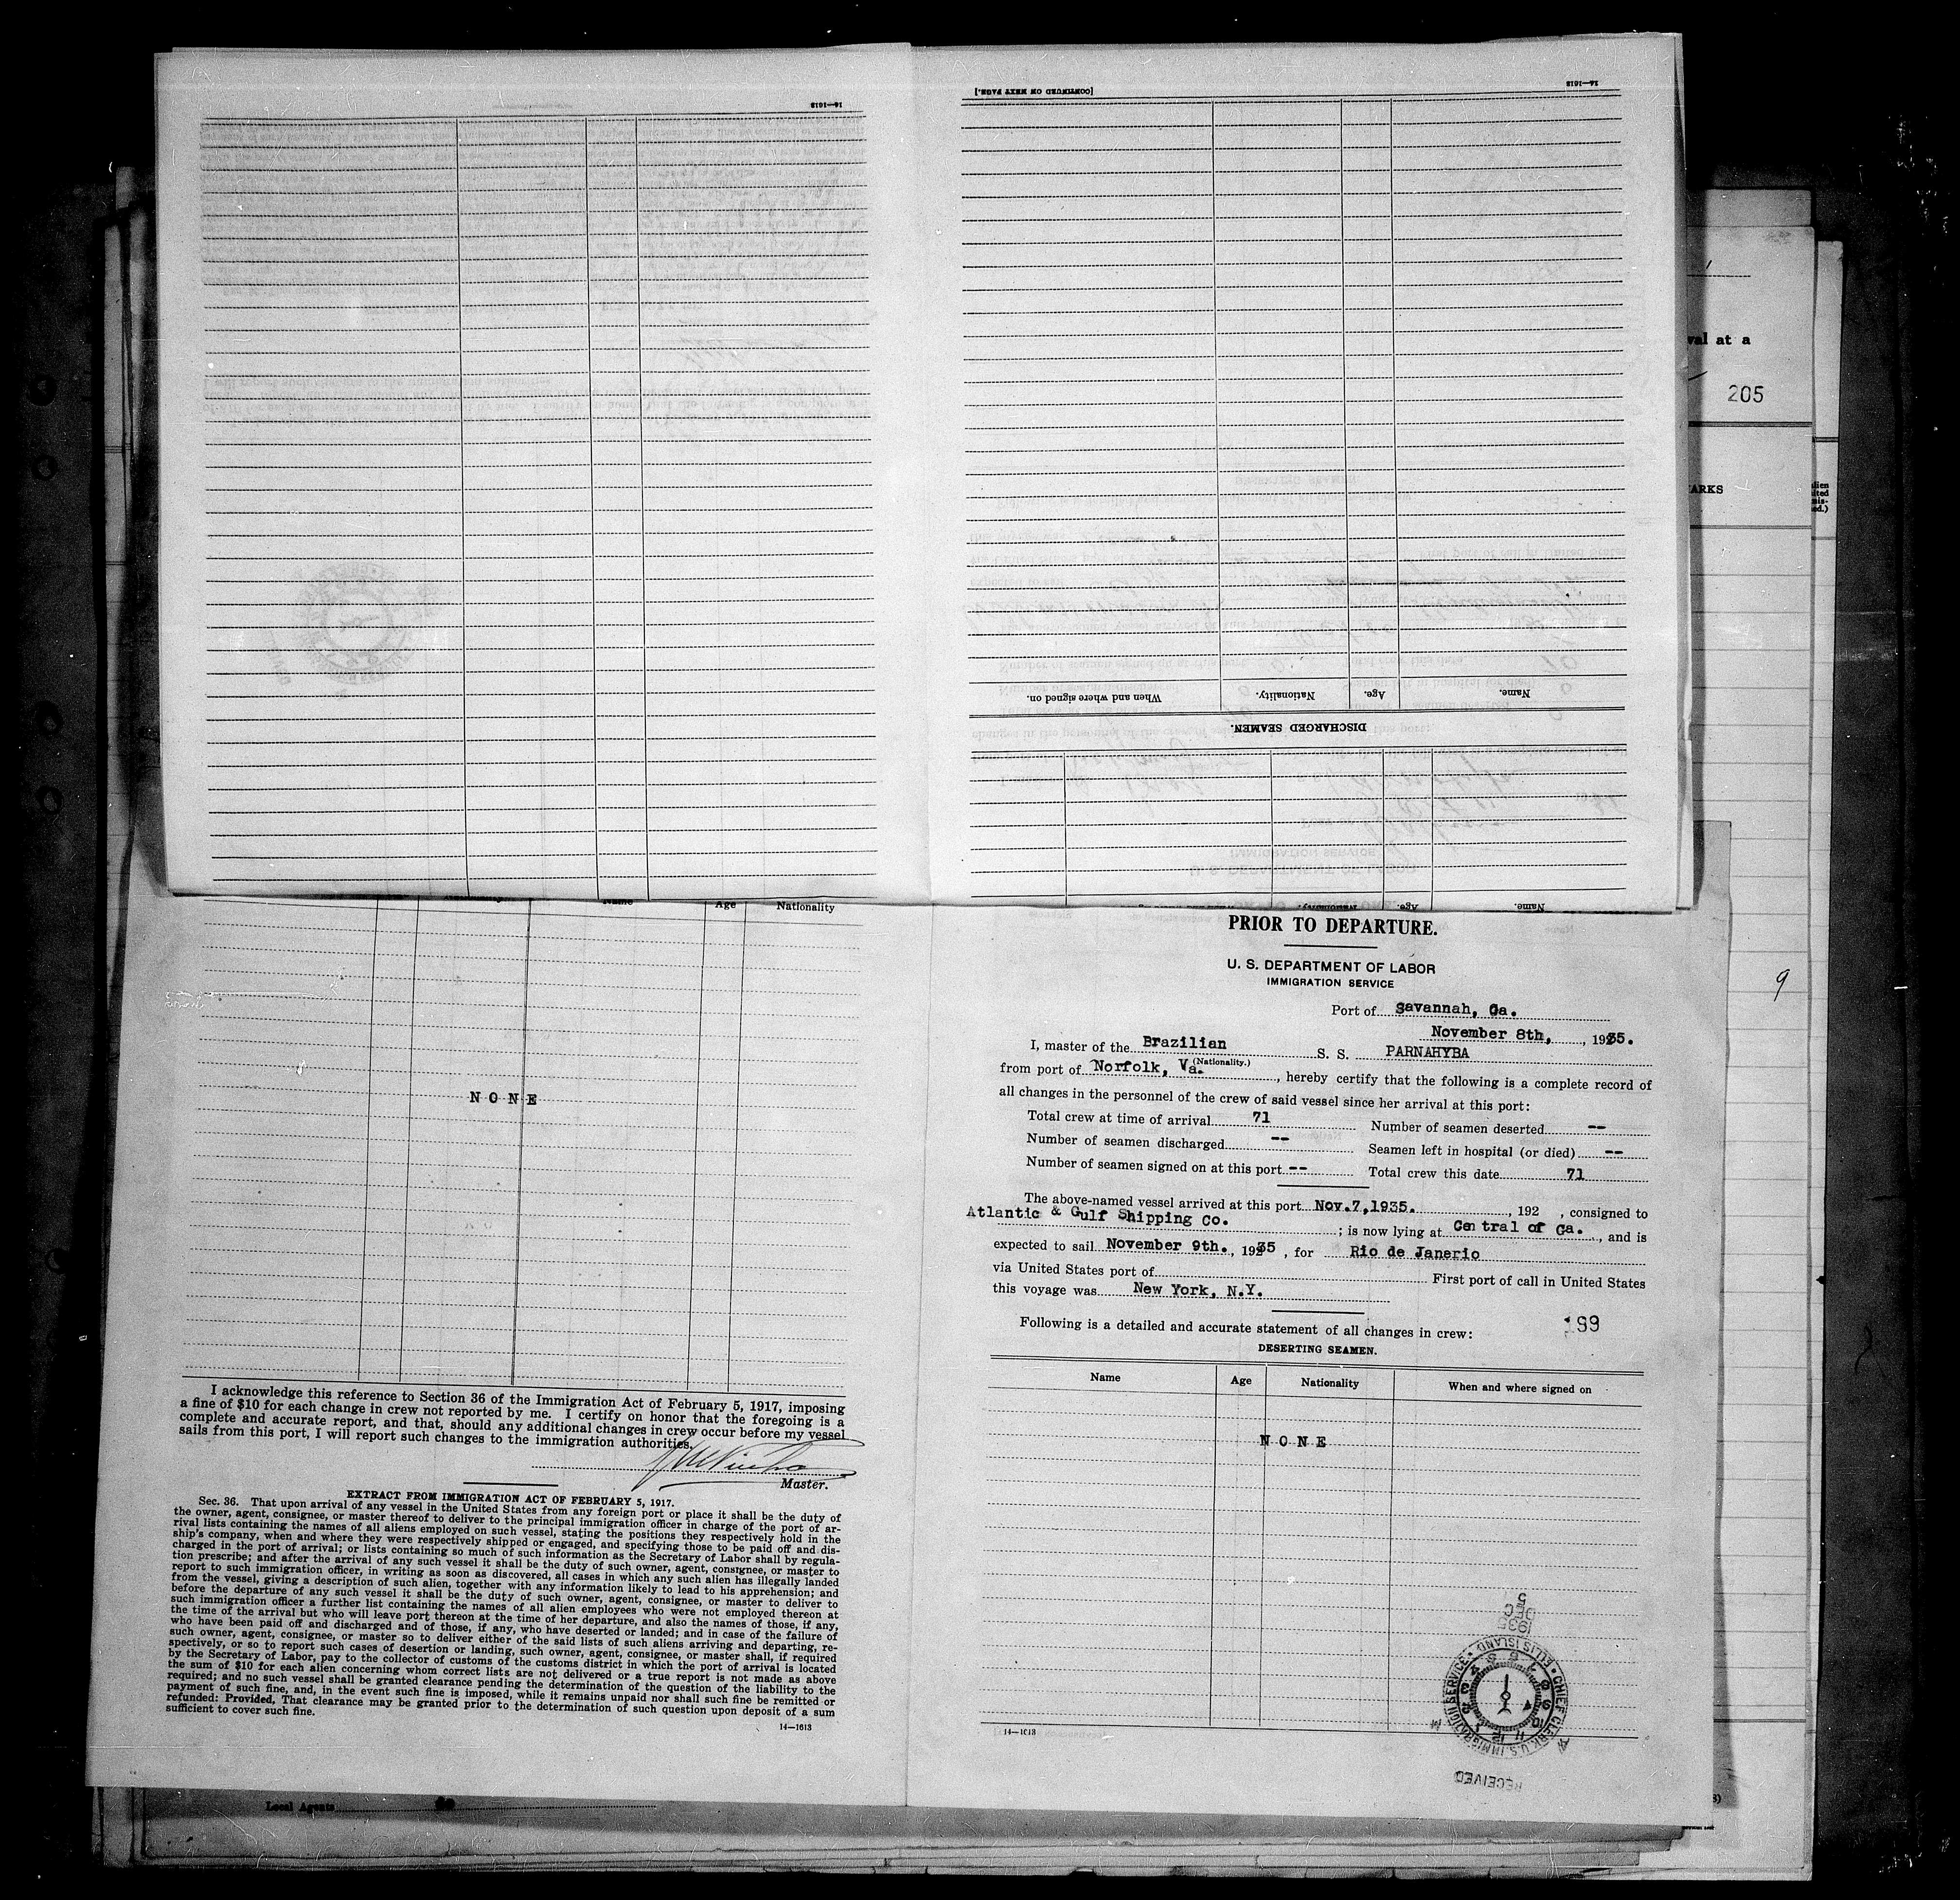 14—1613
[CONTINUED ON NEXT PAGE.]
14—1613
When and where signed on.
Nationality.
Age.
Name.
DISCHARGED SEAMEN.
Nationality.
Age.
Name.
val at a
205
ARKS
9
Name
Age
Nationality
NONE
I acknowledge this reference to Section 36 of the Immigration Act of February 5, 1917, imposing
a fine of $10 for each change in crew not reported by me. I certify on honor that the foregoing is a
complete and accurate report, and that, should any additional changes in crew occur before my vessel
sails from this port, I will report such changes to the immigration authorities.
Master.
EXTRACT FROM IMMIGRATION ACT OF FEBRUARY 5, 1917.
Sec. 36. That upon arrival of any vessel in the United States from any foreign port or place it shall be the duty of
the owner, agent, consignee, or master thereof to deliver to the principal immigration officer in charge of the port of ar-
rival lists containing the names of all aliens employed on such vessel, stating the positions they respectively hold in the
ship's company, when and where they were respectively shipped or engaged, and specifying those to be paid off and dis-
charged in the port of arrival; or lists containing so much of such information as the Secretary of Labor shall by regula-
tion prescribe; and after the arrival of any such vessel it shall be the duty of such owner, agent, consignee, or master to
report to such immigration officer, in writing as soon as discovered, all cases in which any such alien has illegally landed
from the vessel, giving a description of such alien, together with any information likely to lead to his apprehension; and
before the departure of any such vessel it shall be the duty of such owner, agent, consignee, or master to deliver to
such immigration officer a further list containing the names of all alien employees who were not employed thereon at
the time of the arrival but who will leave port thereon at the time of her departure, and also the names of those, if any,
who have been paid off and discharged and of those, if any, who have deserted or landed; and in case of the failure of
such owner, agent, consignee, or master so to deliver either of the said lists of such aliens arriving and departing, re-
spectively, or so to report such cases of desertion or landing, such owner, agent, consignee, or master shall, if required
by the Secretary of Labor, pay to the collector of customs of the customs district in which the port of arrival is located
the sum of $10 for each alien concerning whom correct lists are not delivered or a true report is not made as above
required; and no such vessel shall be granted clearance pending the determination of the question of the liability to the
payment of such fine, and, in the event such fine is imposed, while it remains unpaid nor shall such fine be remitted or
refunded: Provided, That clearance may be granted prior to the determination of such question upon deposit of a sum
sufficient to cover such fine.
14—1613
Local Agents
PRIOR TO DEPARTURE.
U. S. DEPARTMENT OF LABOR
IMMIGRATION SERVICE
Port of Savannah, Ga.
November 8th, , 1935.
I, master of the Brazilian S. S. PARNAHYBA
(Nationality.)
from port of Norfolk, Va. , hereby certify that the following is a complete record of
all changes in the personnel of the crew of said vessel since her arrival at this port:
Total crew at time of arrival 71 Number of seamen deserted --
Number of seamen discharged -- Seamen left in hospital (or died) --
Number of seamen signed on at this port -- Total crew this date 71
The above-named vessel arrived at this port Nov.7,1935. , 192 , consigned to
Atlantic & Gulf Shipping Co. ; is now lying at Central of Ga. , and is
expected to sail November 9th. , 1935 , for Rio de Janerio
via United States port of First port of call in United States
this voyage was New York, N.Y.
199
Following is a detailed and accurate statement of all changes in crew:
DESERTING SEAMEN.
Name Age Nationality When and where signed on
NONE
14—1613
RECEIVED
CHIEF CLERK U.S. IMMIGRATION SERVICE • ELLIS ISLAND •
1935
DEC
5